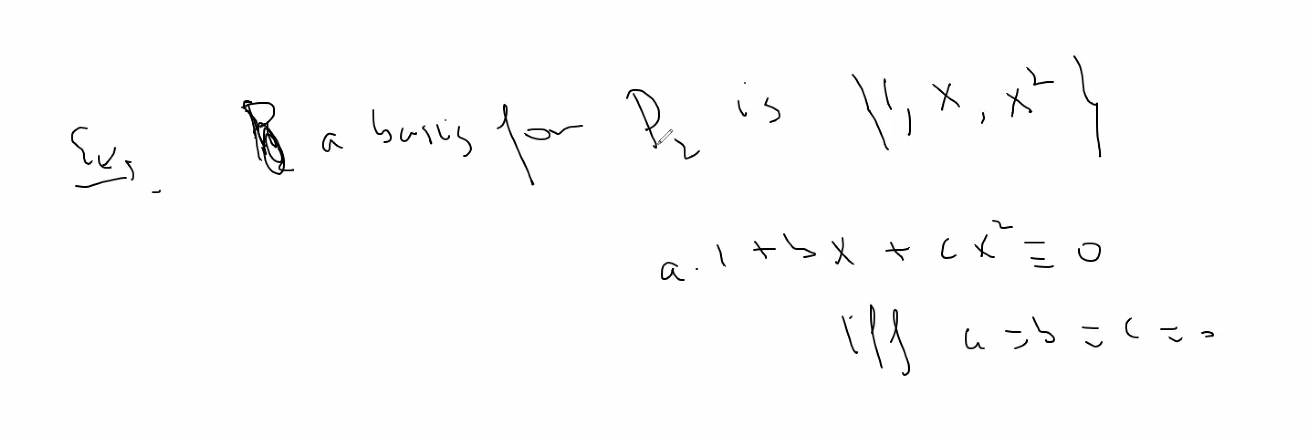 Ex. a basis for P₂ is {1, x, x²}
a·1 + bx + cx² ≡ 0
iff a = b = c = 0